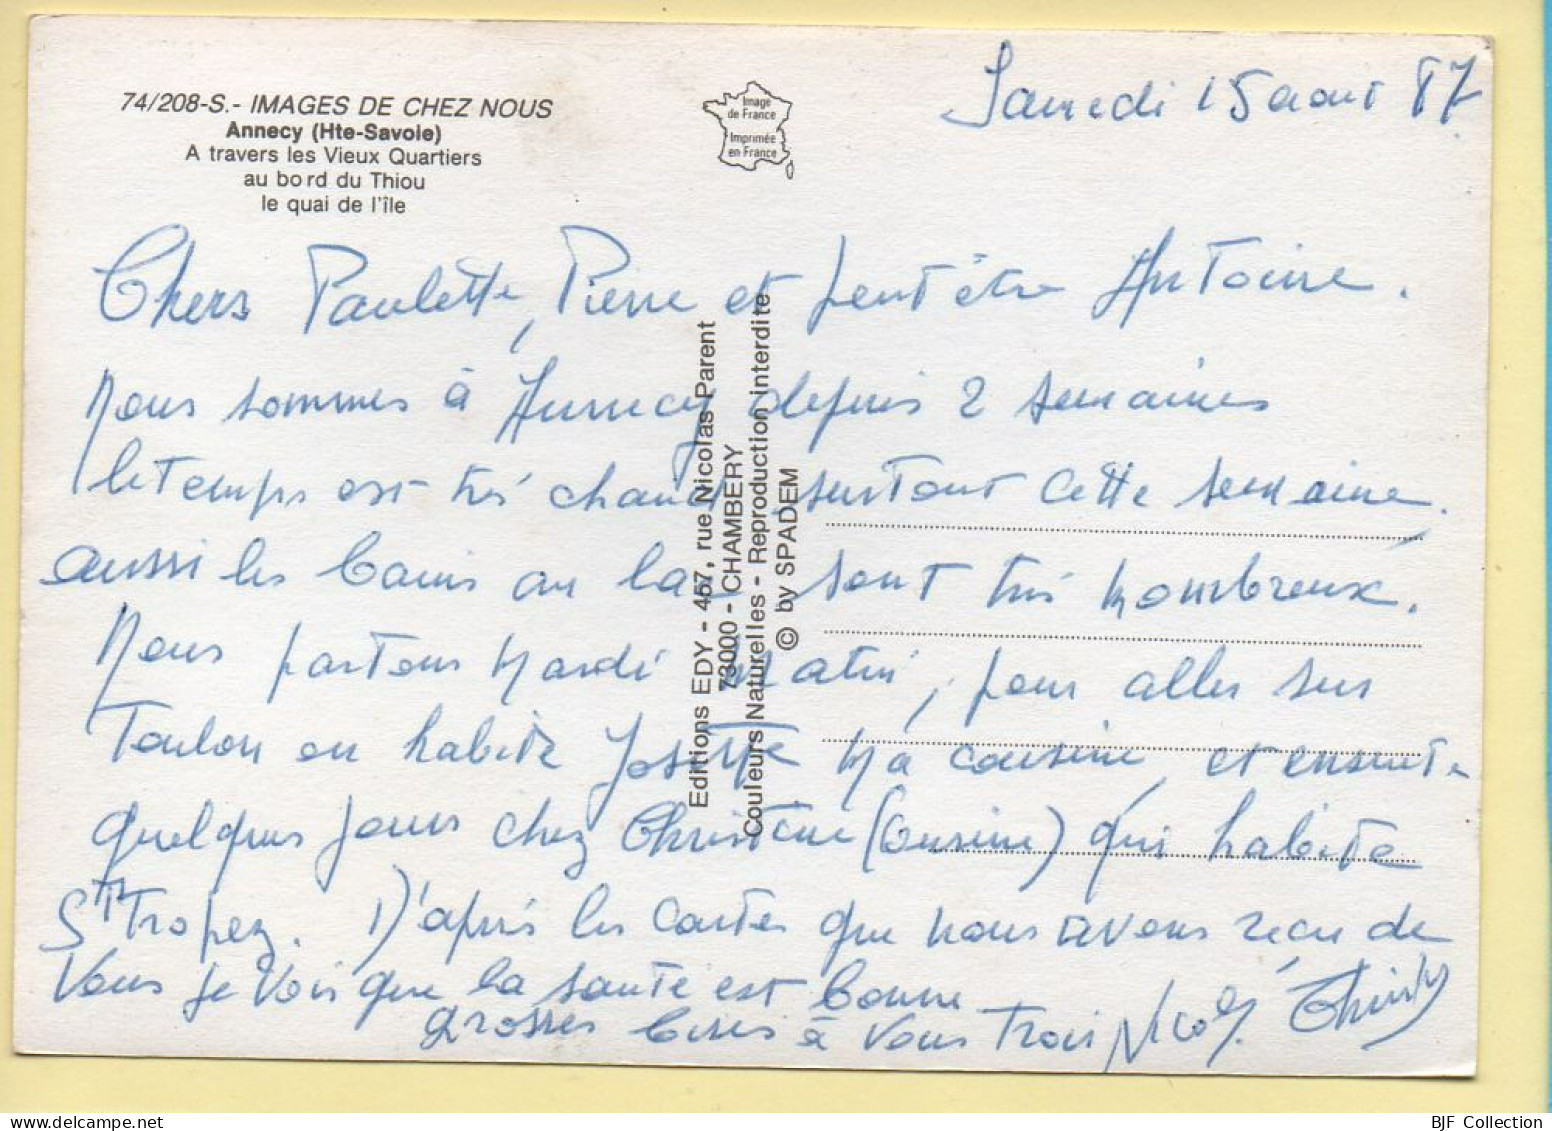 Samedi 15 aout 87
74/208-S.- IMAGES DE CHEZ NOUS
Annecy (Hte-Savoie)
A travers les Vieux Quartiers
au bord du Thiou
le quai de l'île
Image
de France
Imprimée
en France
Chers Paulette, Pierre et peut être Antoine.
Nous sommes à Annecy depuis 2 semaines
le temps est très chaud surtout cette semaine.
aussi les bains au lac sont très nombreux.
Nous partons Mardi matin, pour aller sur
Toulon ou habite Josette Ma cousine, et ensuite
quelques jours chez Christine (Cousine) qui habite
St Tropez. D'après les cartes que nous avons reçu de
Vous je vois que la santé est bonne
grosses bises à Vous Trois
Editions EDY - 457, rue Nicolas Parent
73000 - CHAMBERY
Couleurs Naturelles - Reproduction interdite
© by SPADEM
BJF Collection